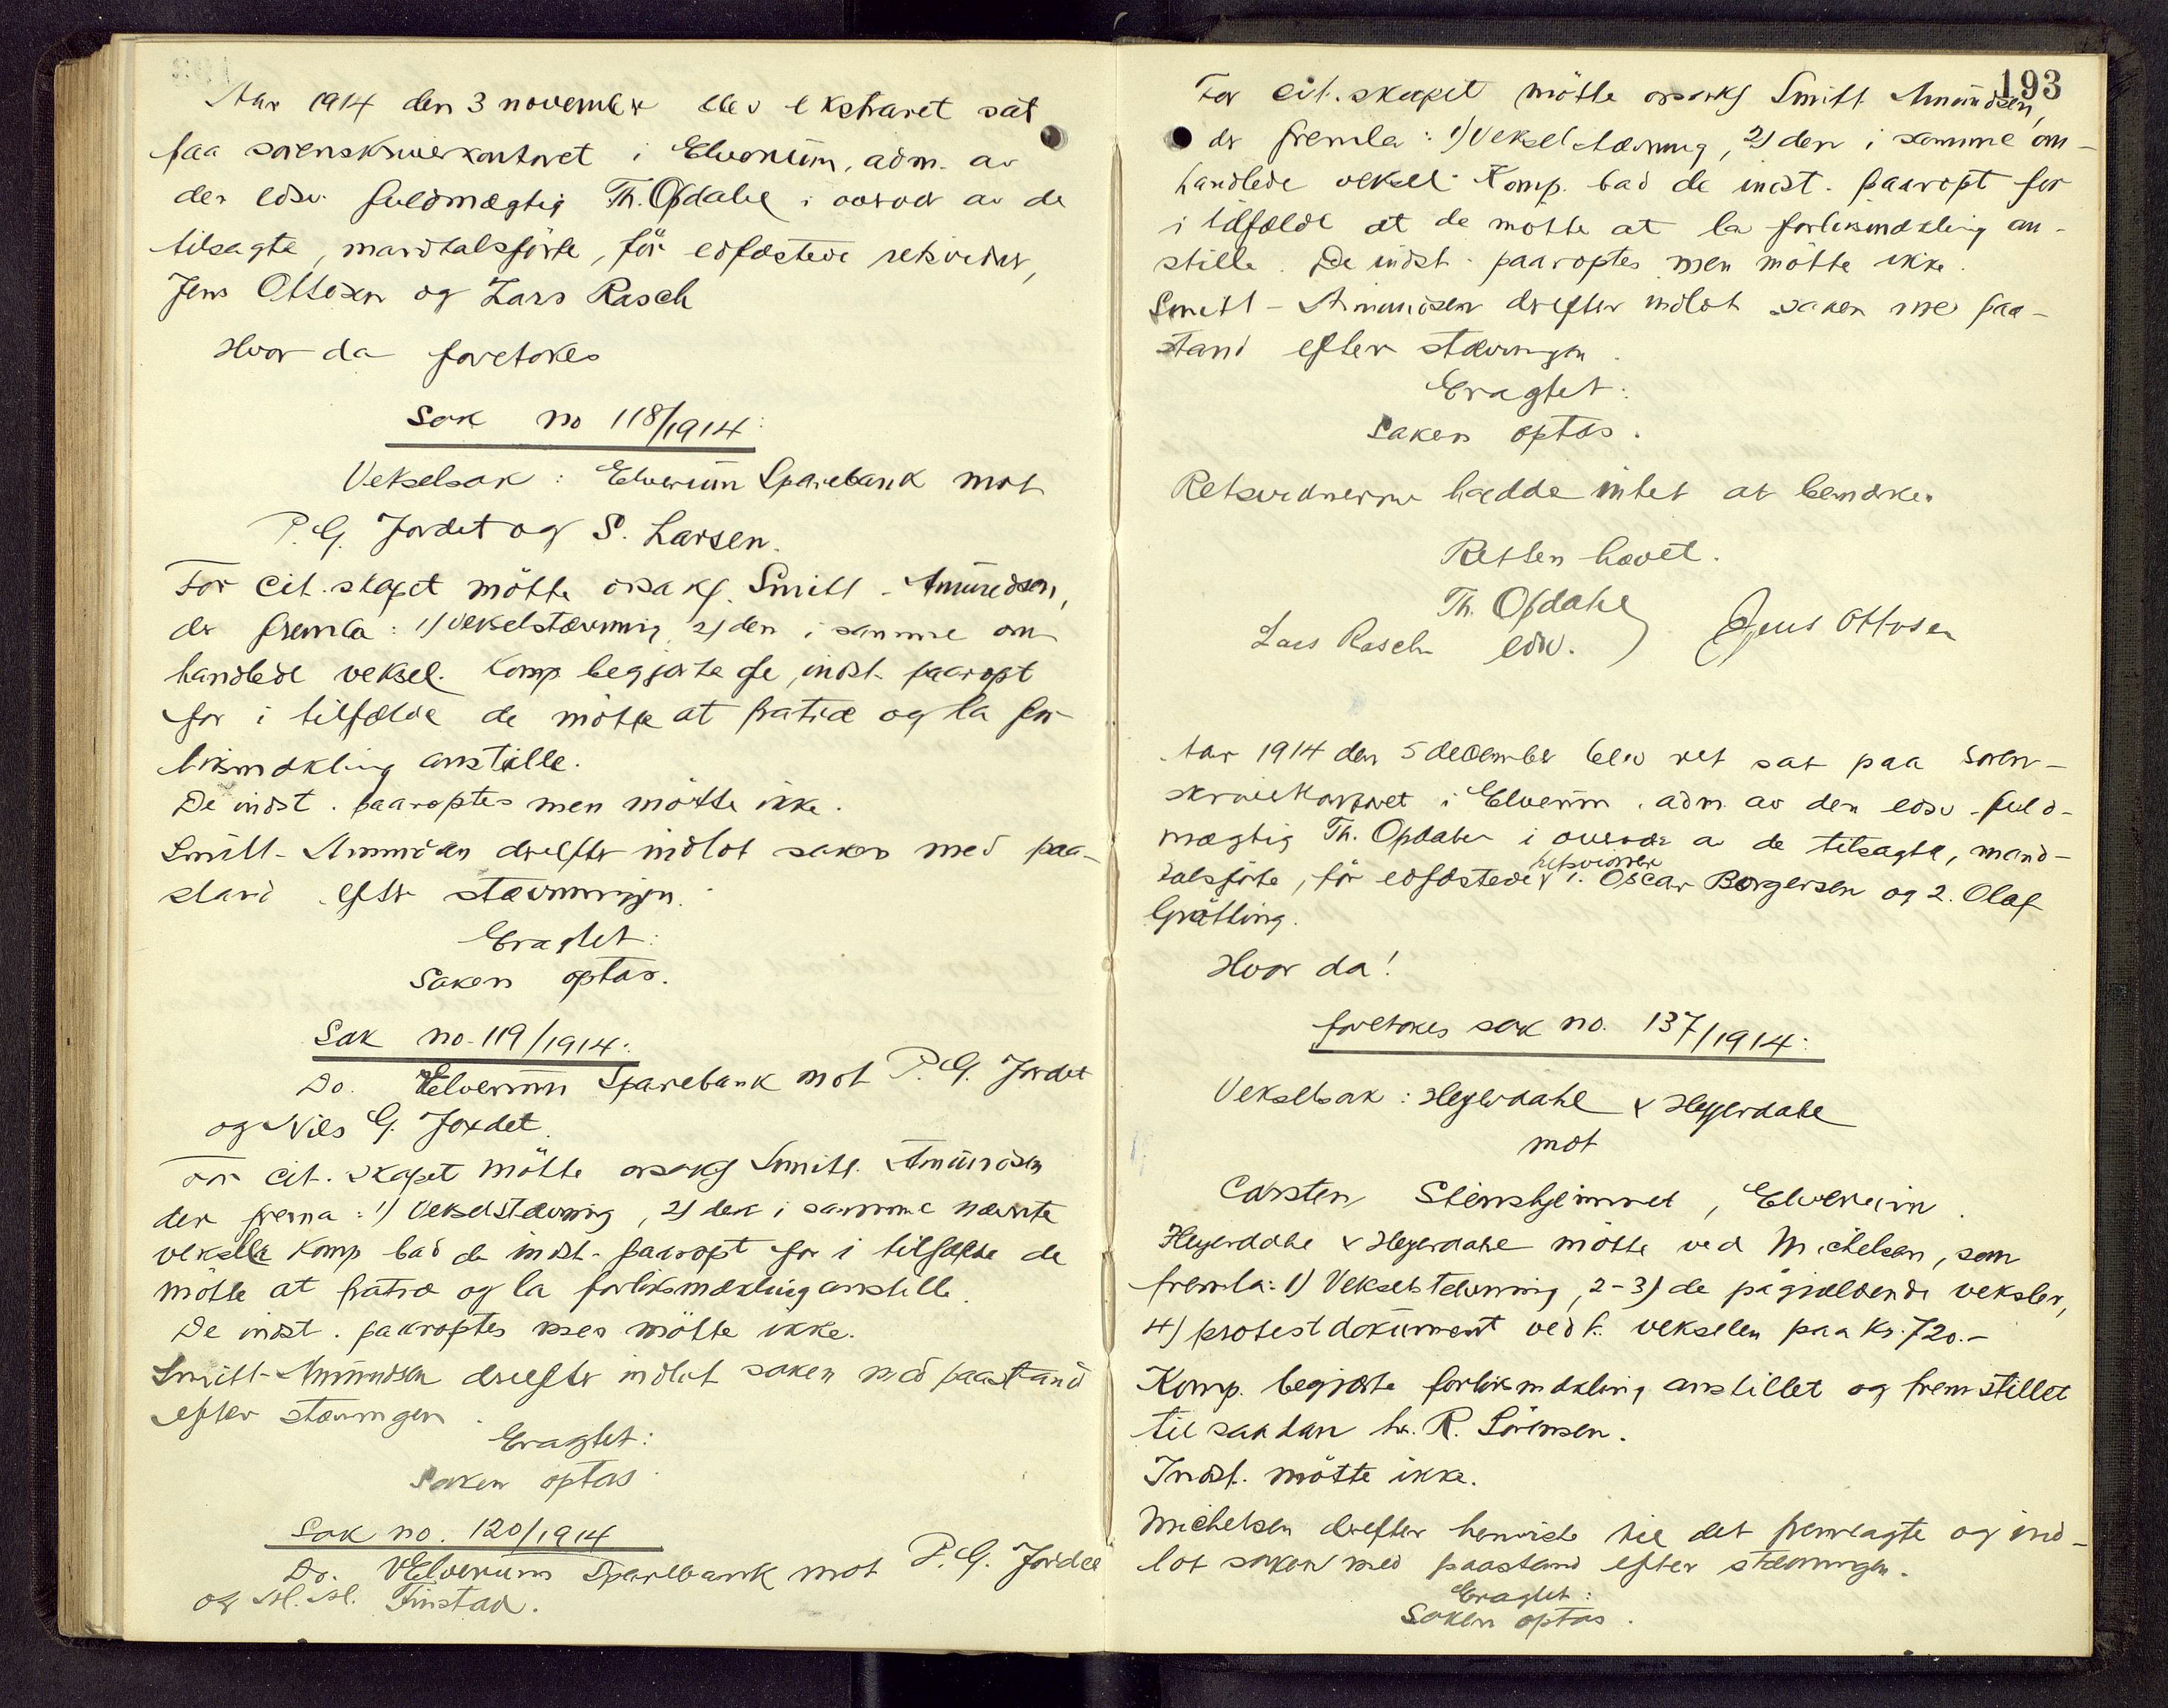 Aar 1914 den 3 november blev ekstraret sat
paa sorenskriverkontoret i Elverum, adm. av
den edsv. fuldmægtig Th. Opdahl i overvær av de
tilsagte, mandtalsførte, før edfæstede retsvidner,
Jens Ottosen og Lars Rasch
Hvor da foretokes
Sak no 118/1914:
Vekselsak: Elverum Sparebank mot
P. G. Jordet og S. Larsen.
For cit.skapet møtte orsakf. Smitt-Amundsen,
der fremla: 1) vekselstævning 2) den i samme om
handlede veksel. Komp. begjærte de indst. paaropt
for i tilfælde de møtte at fratræ og la for
liksmækling anstille.
De indst. paaroptes men møtte ikke.
Smitt-Amundsen derefter indlot saken med paa-
stand efter stævningen.
Eragtet:
Saken optas.
Sak no. 119/1914:
Do. Elverum Sparebank mot P. G. Jordet
og Nils G. Jordet.
For cit.skapet møtte orsakf Smitt-Amundsen
der fremla: 1) Vekselstævning, 2) den i samme nævnte
veksel Komp bad de indst. paaropt for i tilfælde de
møtte at fratræ og la forliksmækling anstille.
De indst. paaroptes men møtte ikke.
Smitt-Amundsen derefter indlot saken med paastand
efter stævningen.
Eragtet:
Saken optas
Sak no. 120/1914
Do. Elverum Sparebank mot P. G. Jordet
og M. M. Finstad.
193
For cit.skapet møtte orsakf Smitt Amundsen,
der fremla: 1) Vekselstævning, 2) den i samme om-
handlede veksel. Komp. bad de indst. paaropt for
i tilfælde at de møtte at la forliksmækling an-
stille. De indst. paaroptes men møtte ikke.
Smitt-Amundsen derefter indlot saken med paa-
stand efter stævningen.
Eragtet:
Saken optas.
Retsvidnerne hadde intet at bemærke.
Retten hævet.
Th. Opdahl
Lars Rasch edsv. Jens Ottosen
Aar 1914 den 5 december blev ret sat paa soren-
skriverkontoret i Elverum, adm. av den edsv. fuld-
mægtig Th. Opdahl i overvær av de tilsagte, mand-
retsvidner
talsførte, før edfæstede v 1. Oscar Borgersen og 2. Olaf
Grøtting.
Hvor da!
foretokes sak no. 137/1914:
Vekselsak: Heyerdahl & Heyerdahl
mot
Carsten Stenshjemmet, Elverum.
Heyerdahl & Heyerdahl møtte ved Michelsen, som
fremla: 1) Vekselstævning, 2-3) de pågjældende veksler,
4) protestdokument vedk. vekselen paa Kr. 720.-
Komp. begjærte forliksmækling anstillet og fremstillet
til saadan hr. R. Sørensen.
Indst. møtte ikke.
Michelsen derefter henviste til det fremlagte og ind-
lot saken med paastand efter stævningen.
Eragtet:
Saken optas.